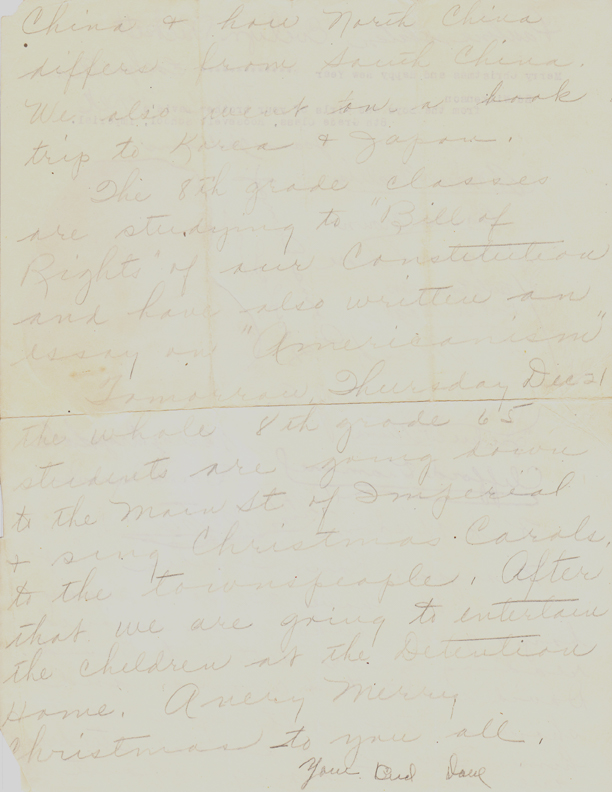 China & how North China
differs from South China.
We also went on a book
trip to Korea & Japan.
The 8th grade classes
are studying to "Bill of
Rights" of our Constitution
and have also written an
essay on "Americanism"
Tomorrow, Thursday Dec 21
the whole 8th grade 65
students are going down
to the Main St of Imperial
& sing Christmas Carols.
to the townspeople. After
that we are going to entertain
the children at the Detention
Home. A very Merry
Christmas to you all.
Your Bud Dave